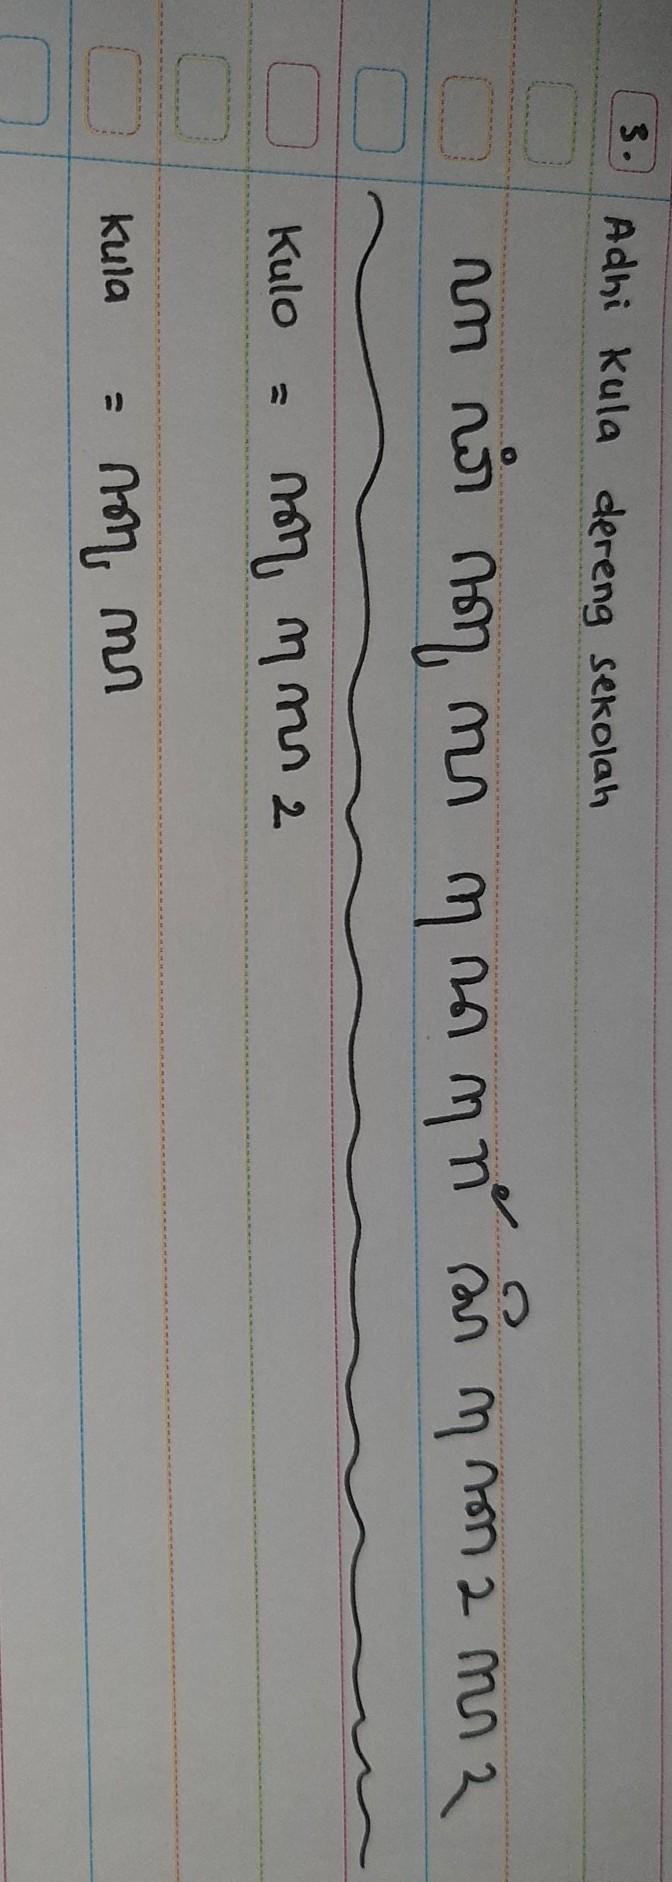 3. Adhi kula dereng sekolah
ꦲ ꦝꦶ ꦏꦸ ꦭ ꦢꦺ ꦫꦺꦁ ꦱꦼ ꦏꦺꦴ ꦭꦃ
Kulo = ꦏꦸ ꦭꦺꦴ
Kula = ꦏꦸ ꦭ